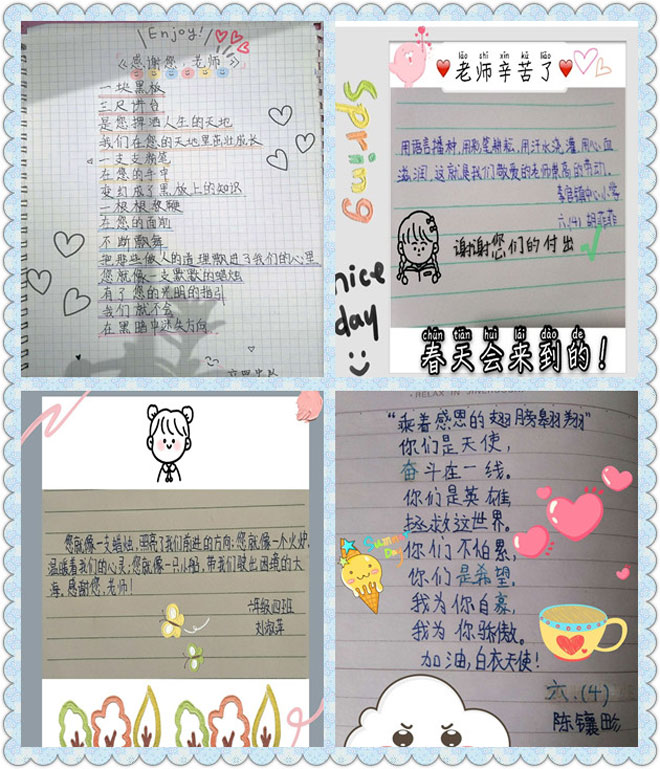 Enjoy!
《感谢您,老师》
一块黑板
三尺讲台
是您挥洒人生的天地
我们在您的天地里茁壮成长
一支支粉笔
在您的手中
变幻成了黑板上的知识
一根根教鞭
在您的面前
不断飘舞
把那些做人的道理撒进了我们的心里
您就像一支默默的蜡烛
有了您的光明的指引
我们就不会
在黑暗中迷失方向
lǎo shī xīn kǔ liǎo
老师辛苦了
Spring
用语言播种,用彩笔耕耘,用汗水浇灌,用心血
滋润,这就是我们敬爱的老师崇高的劳动。
镇中心小学
六(4)胡菲菲
谢谢您们的付出
nice
day
chūn tiān huì lái dào de
春天会来到的!
您就像一支蜡烛,照亮了我们前进的方向;您就像一个火炉,
温暖着我们的心灵;您就像一只小船,带我们驶出困境的大
海。感谢您,老师!
六年级四班
刘淑萍
“乘着感恩的翅膀翱翔”
你们是天使,
奋斗在一线。
你们是英雄,
拯救这世界。
你们不怕累,
你们是希望。
我为你自豪,
我为你骄傲。
加油,白衣天使!
六.(4)
陈镶
Summer
Day